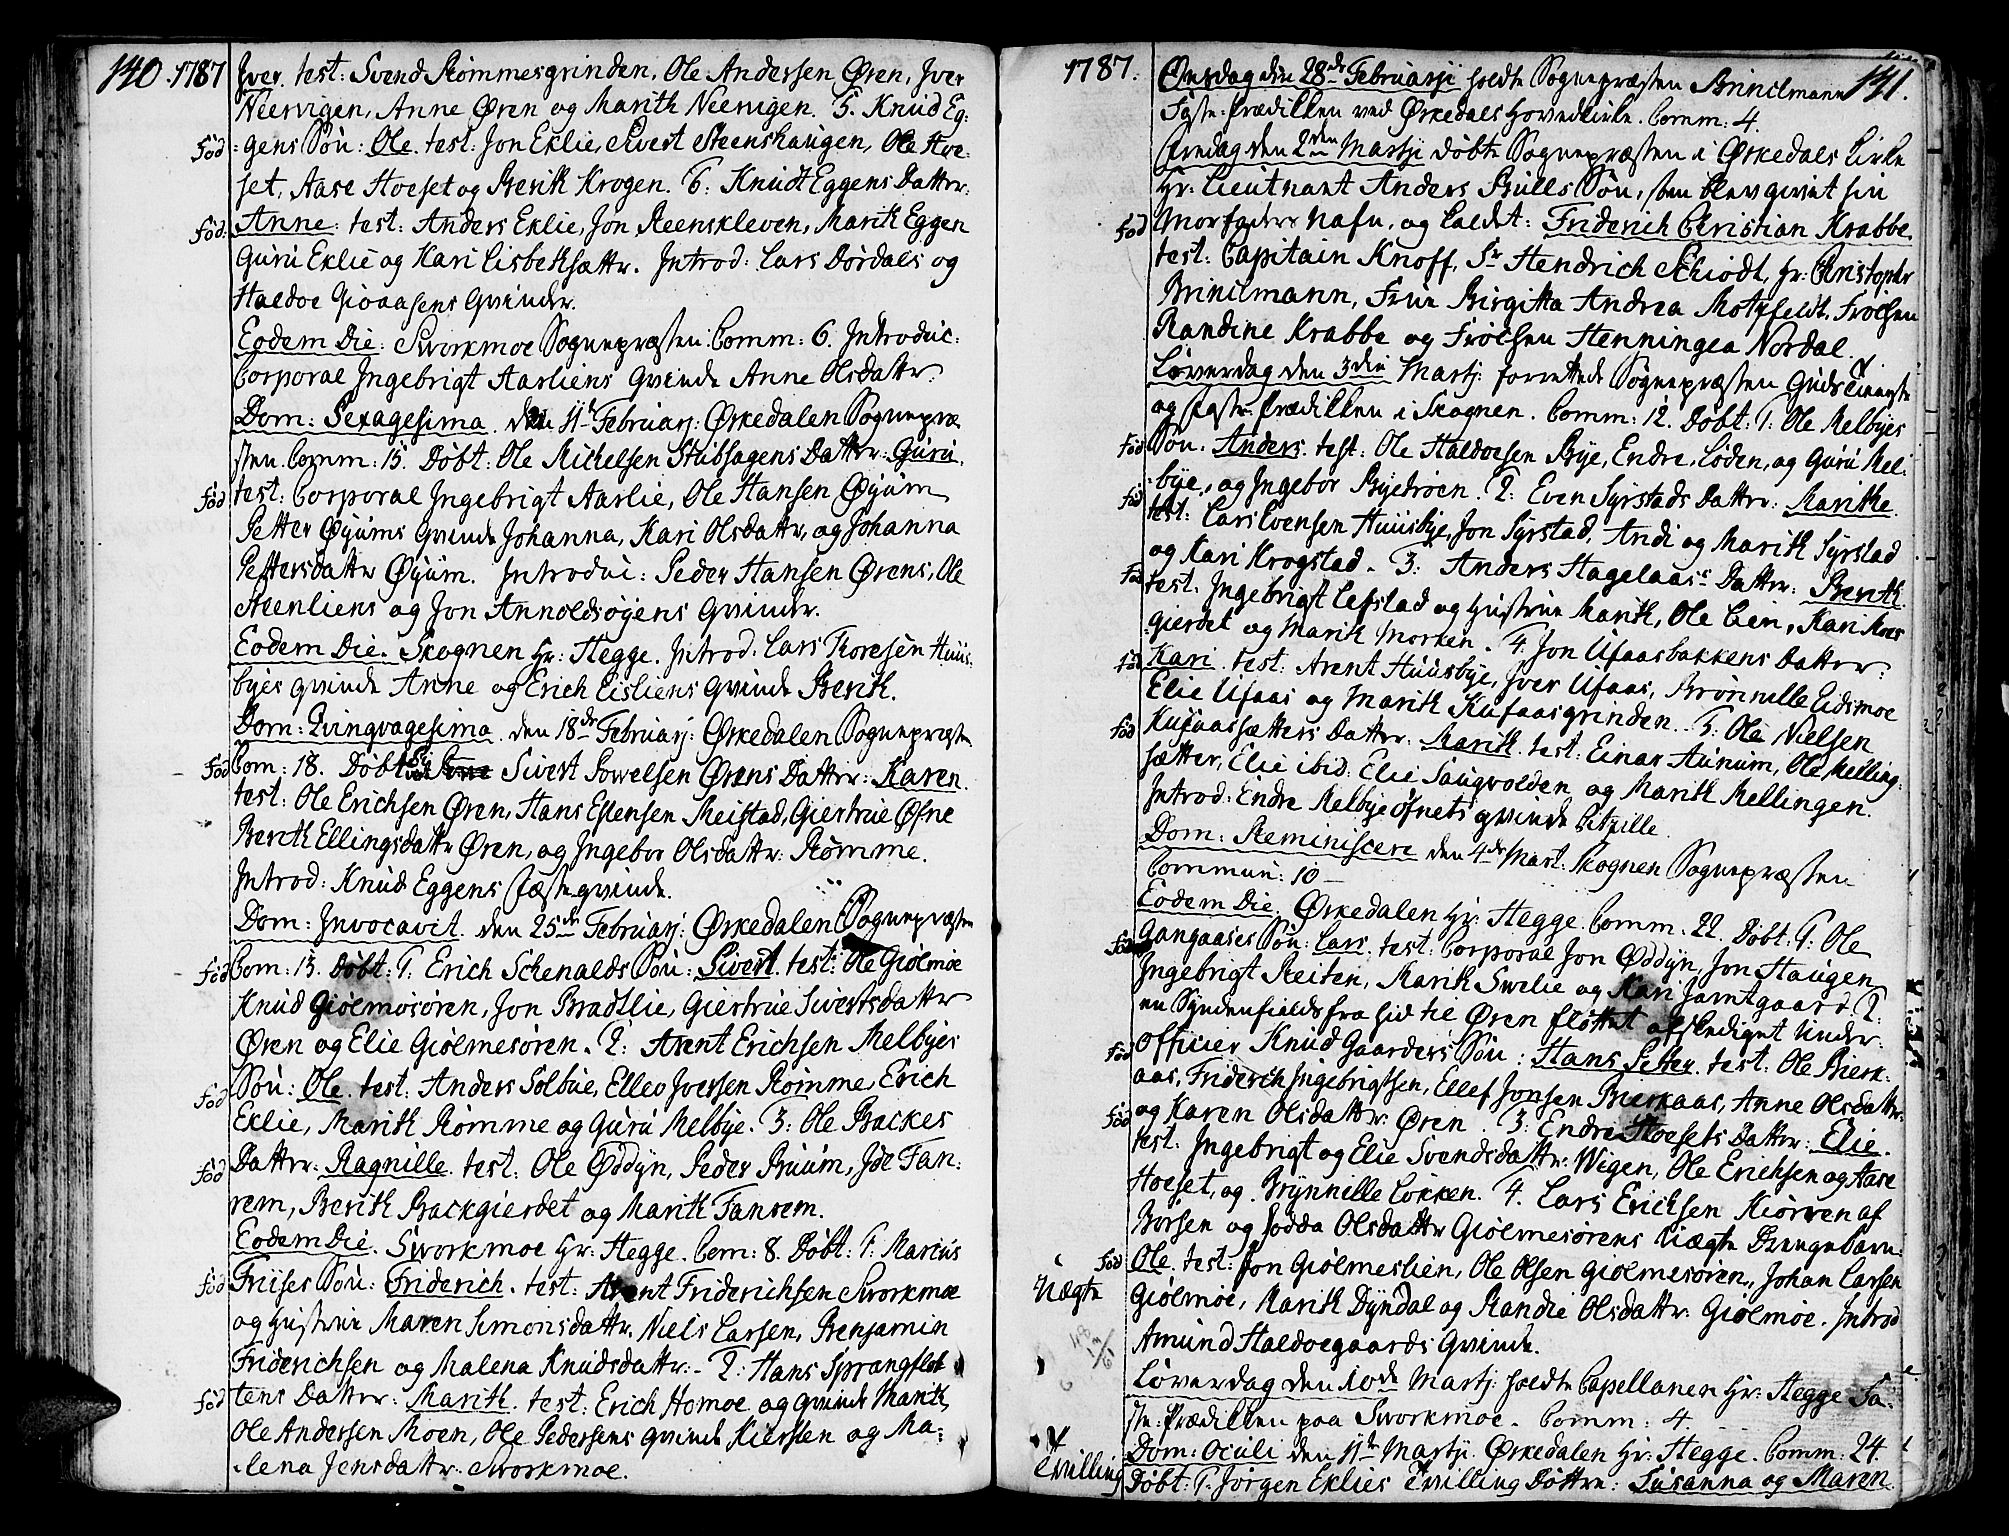 140. 1787
Jver. test: Svend Rømmesgrinden, Ole Andersen Øren, Jver
Neervigen, Anne Øren og Marith Neervigen. 5. Knud Eg-
Fød gens Søn: Ole. test: Jon Eklie, Sivert Steenshaugen, Ole Hoe-
set, Aase Hoeset og Berith Krogen. 6: Knud Eggens Datter:
Fød: Anne: test: Anders Eklie, Jon Reenskleven, Marith Eggen
Guru Eklie og Kari Lisbethsættr. Introd: Lars Dørdals og
Haldoe Gioaasens Qvinder.
Eodem Die: Svorkmoe Sognepræsten: Comm: 6. Introduc:
Corporal Ingebrigt Aarliens Qvinde Anne Olsdattr.
Dom: Sexagesima. den 11te Februarj: Ørkedalen Sognepræ-
sten. Comm: 15. Døbt: Ole Michelsen Stubsagens Dattr: Guru.
Fød test: Corporal Ingebrigt Aarlie, Ole Hansen Øyum
Petter Øyums Qvinde Johanna, Kari Olsdattr, og Johanna
Pettersdattr Øyum. Introduc: Peder Hansen Ørens, Ole
Steenliens og Jon Annoldsøyens Qvinder.
Eodem Die. Skognen Hr: Hegge. Introd. Lars Thoresen Huus-
byes qvinde Anne og Erich Lisliens qvinde Berith.
Dom: Qvinqvagesima. den 18de Februarj: Ørkedalen Sognepræsten
Fød Com: 18. Døbt Sivert Powelsen Ørens Dattr: Karen.
test: Ole Erichsen Øren, Hans Estensen Meistad, Giertrue Øfne
Berith Ellingsdattr Øren, og Ingebor Olsdattr: Rømme.
Introd: Knud Eggens fæsteqvinde.
Dom: Invocavit. den 25de Februarj: Ørkedalen Sognepræsten
Fød Com: 15. Døbt: 1. Erich Schenalds Søn: Sivert. test: Ole Giølmoe
Knud Giølmosøren, Jon Bradtlie, Giertrue Sivertsdattr
Øren og Elie Giølmesøren. 2: Arent Erichsen Melbyes
Fød Søn: Ole. test: Anders Solbue, Ellev Joersen Rømme, Erich
Eklie, Marith Rømme og Guru Melbye. 3: Ole Backes
Fød Dattr: Ragnille. test: Ole Oddyn, Peder Bruum, Jde Fan-
rem, Berith Backgierdet og Marith Fanrem.
Eodem Die. Svorkmoe Hr: Hegge. Com: 8. Døbt: 1. Marcus
Fød Friises Søn: Friderich. test: Arent Friderichsen Svorkmoe
og Hustrue Maren Simonsdattr. Niels Larsen, Benjamin
Friderichsen og Malena Knudsdattr. - 2: Hans Sprangflot
Fød tens Datter: Marith. test: Erich Homoe og qvinde Marith,
Ole Andersen Moen, Ole Pedersens qvinde Kiersten og Ma-
lena Jensdattr: Svorkmoe.
1787. 141.
Onsdag den 28de Februarji holdte Sognepræsten Brincmann
Faste-Prædiken ved Ørkedals Hovedkirke. Comm: 4.
Fredag den 2den Martji døbte Sognepræsten i Ørkedals Kirke
Hr: Lieutnant Anders Bulls Søn, som blev givet sin
Fød Morfaders Nafn, og kaldet: Friderich Christian Krabbe.
test: Capitain Knoff, Sr Hendrich Schiødt, Hr: Christopher
Brincmann, Frue Birgitta Andrea Motzfeldt, Frøchen
Randine Krabbe og Frøchen Henningea Nordal.
Løverdag den 3die Martj: forrettede Sognepræsten Gudstieneste
og Faste-Prædiken i Skognen. Comm: 12. Døbt: 1. Ole Melbyes
Fød Søn: Anders. test: Ole Haldoesen Bye, Endre, Loden, og Guru Mel-
bye, og Ingebor Byetrøen. 2: Even Syrstads Dattr: Marithe.
Fød test: Lars Evensen Huusbye, Jon Syrstad, Andi og Marith Syrstad
og Kari Krogstad. 3: Anders Hagelaass Dattr: Berith
Fød test. Ingebrigt Lefstad og Hustrue Marith, Ole Lien, Kari Moes
gierdet og Marith Morken. 4. Jon Ufaasbakkens Dattr:
Fød Kari. test: Arent Huusbye, Jver Ufaas, Brønnille Eidsmoe
Elie Ufaas og Marith Kufaasgrinden. 5: Ole Nielsen
Fød Kufaassætters Dattr: Marith. test: Einar Aunum, Ole Melling-
sætter, Elie ibid: Elie Saugvolden og Marith Mellingen.
Introd: Endre Melbyeøfnets qvinde
Dom: Reminiscere den 4de Mart: Skognen Sognepræsten
Commun: 10
Eodem Die. Ørkedalen Hr: Hegge. Comm. 22. Døbt: 1: Ole
Fød Gangaases Søn: Lars. test: Corporal Jon Oddyn, Jon Haugen
Ingebrigt Reiten, Marith Swelie og Kari Jamtgaard. 2:
en Syndenfields fra hid til Øren fløttet afskediget Under-
Fød Officier Knud Gaarders Søn: Hans Petter. test: Ole Bierk-
aas, Friderich Ingebrigtsen, Ellef Jonsen Bierkaas, Anne Olsdattr:
Fød og Karen Olsdattr: Øren. 3: Endre Hoesets Dattr: Elie.
test: Ingebrigt og Elie Svendsdattr: Wigen, Ole Erichsen og Aase
Hoeset, og Brynnille Løkken. 4. Lars Erichsen Kiørren af
Børsen og Jodda Olsdattr Giølmesørens Uægte Drengebarn:
Fød Ole. test: Jon Giølmeslien, Ole Olsen Giølmesøren, Johan Larsen
Uægte Giølmoe, Marith Dyndal og Randie Olsdattr: Giølmoe. Introd
Amund Haldoegaards Qvinde.
Løverdag den 10de Martj: holdte Capellanen Hr: Hegge Fa-
ste-Prædiken paa Svorkmoe. Comm: 4
Dom: Oculi den 11te Martji. Ørkedalen Hr: Hegge. Comm: 24.
Tvilling Døbt: 1. Jørgen Eklies Tvilling Døttre: Susanna og Maren